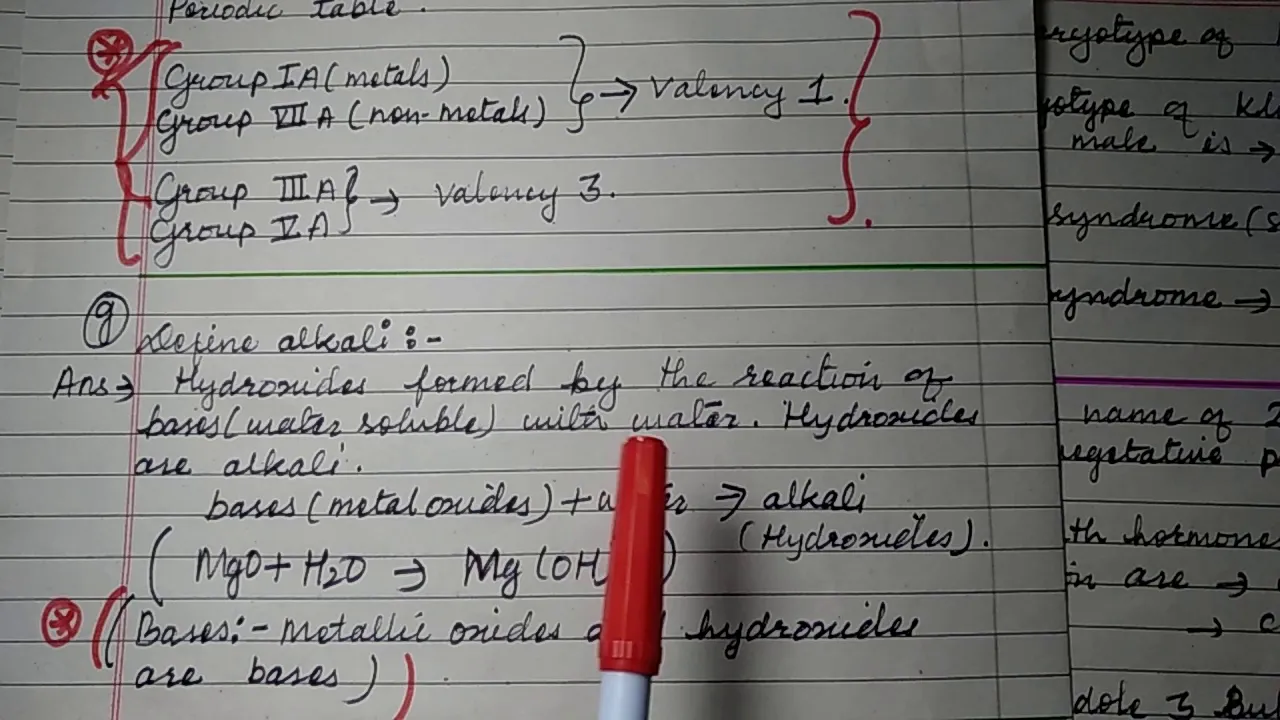 Periodic table.
Group IA (metals)
Group VII A (non-metals)
→ Valency 1.
Group III A
Group V A
→ Valency 3.
9 Define alkali :-
Ans→ Hydroxides formed by the reaction of
bases (water soluble) with water. Hydroxides
are alkali.
bases (metal oxides) + → alkali
(Hydroxides).
(MgO + H2O → Mg(OH )
((Bases:- Metallic oxides hydroxides
are bases))
male is →
syndrome (S
yndrome →
name of 2
th hormone
in are →
→